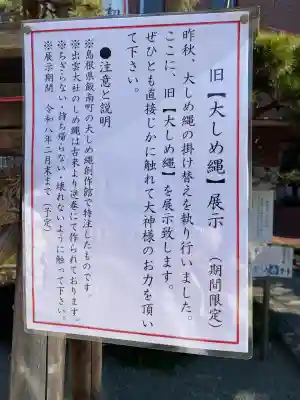 旧【大しめ縄】展示（期間限定）
昨秋、大しめ縄の掛け替えを執り行いました。
ここに、旧【大しめ縄】を展示致します。
ぜひとも直接じかに触れて大神様のお力を頂い
て下さい。
●注意と説明
※島根県飯南町の大しめ縄創作館で特注したものです。
※出雲大社のしめ縄は古来より逆巻にて作られております。
※ちぎらない・持ち帰らない・壊れないように触って下さい。
※展示期間　令和八年二月末まで（予定）